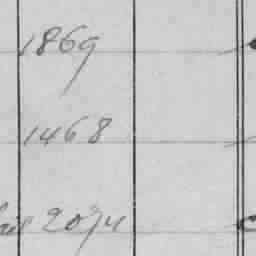 1869
1468
2074